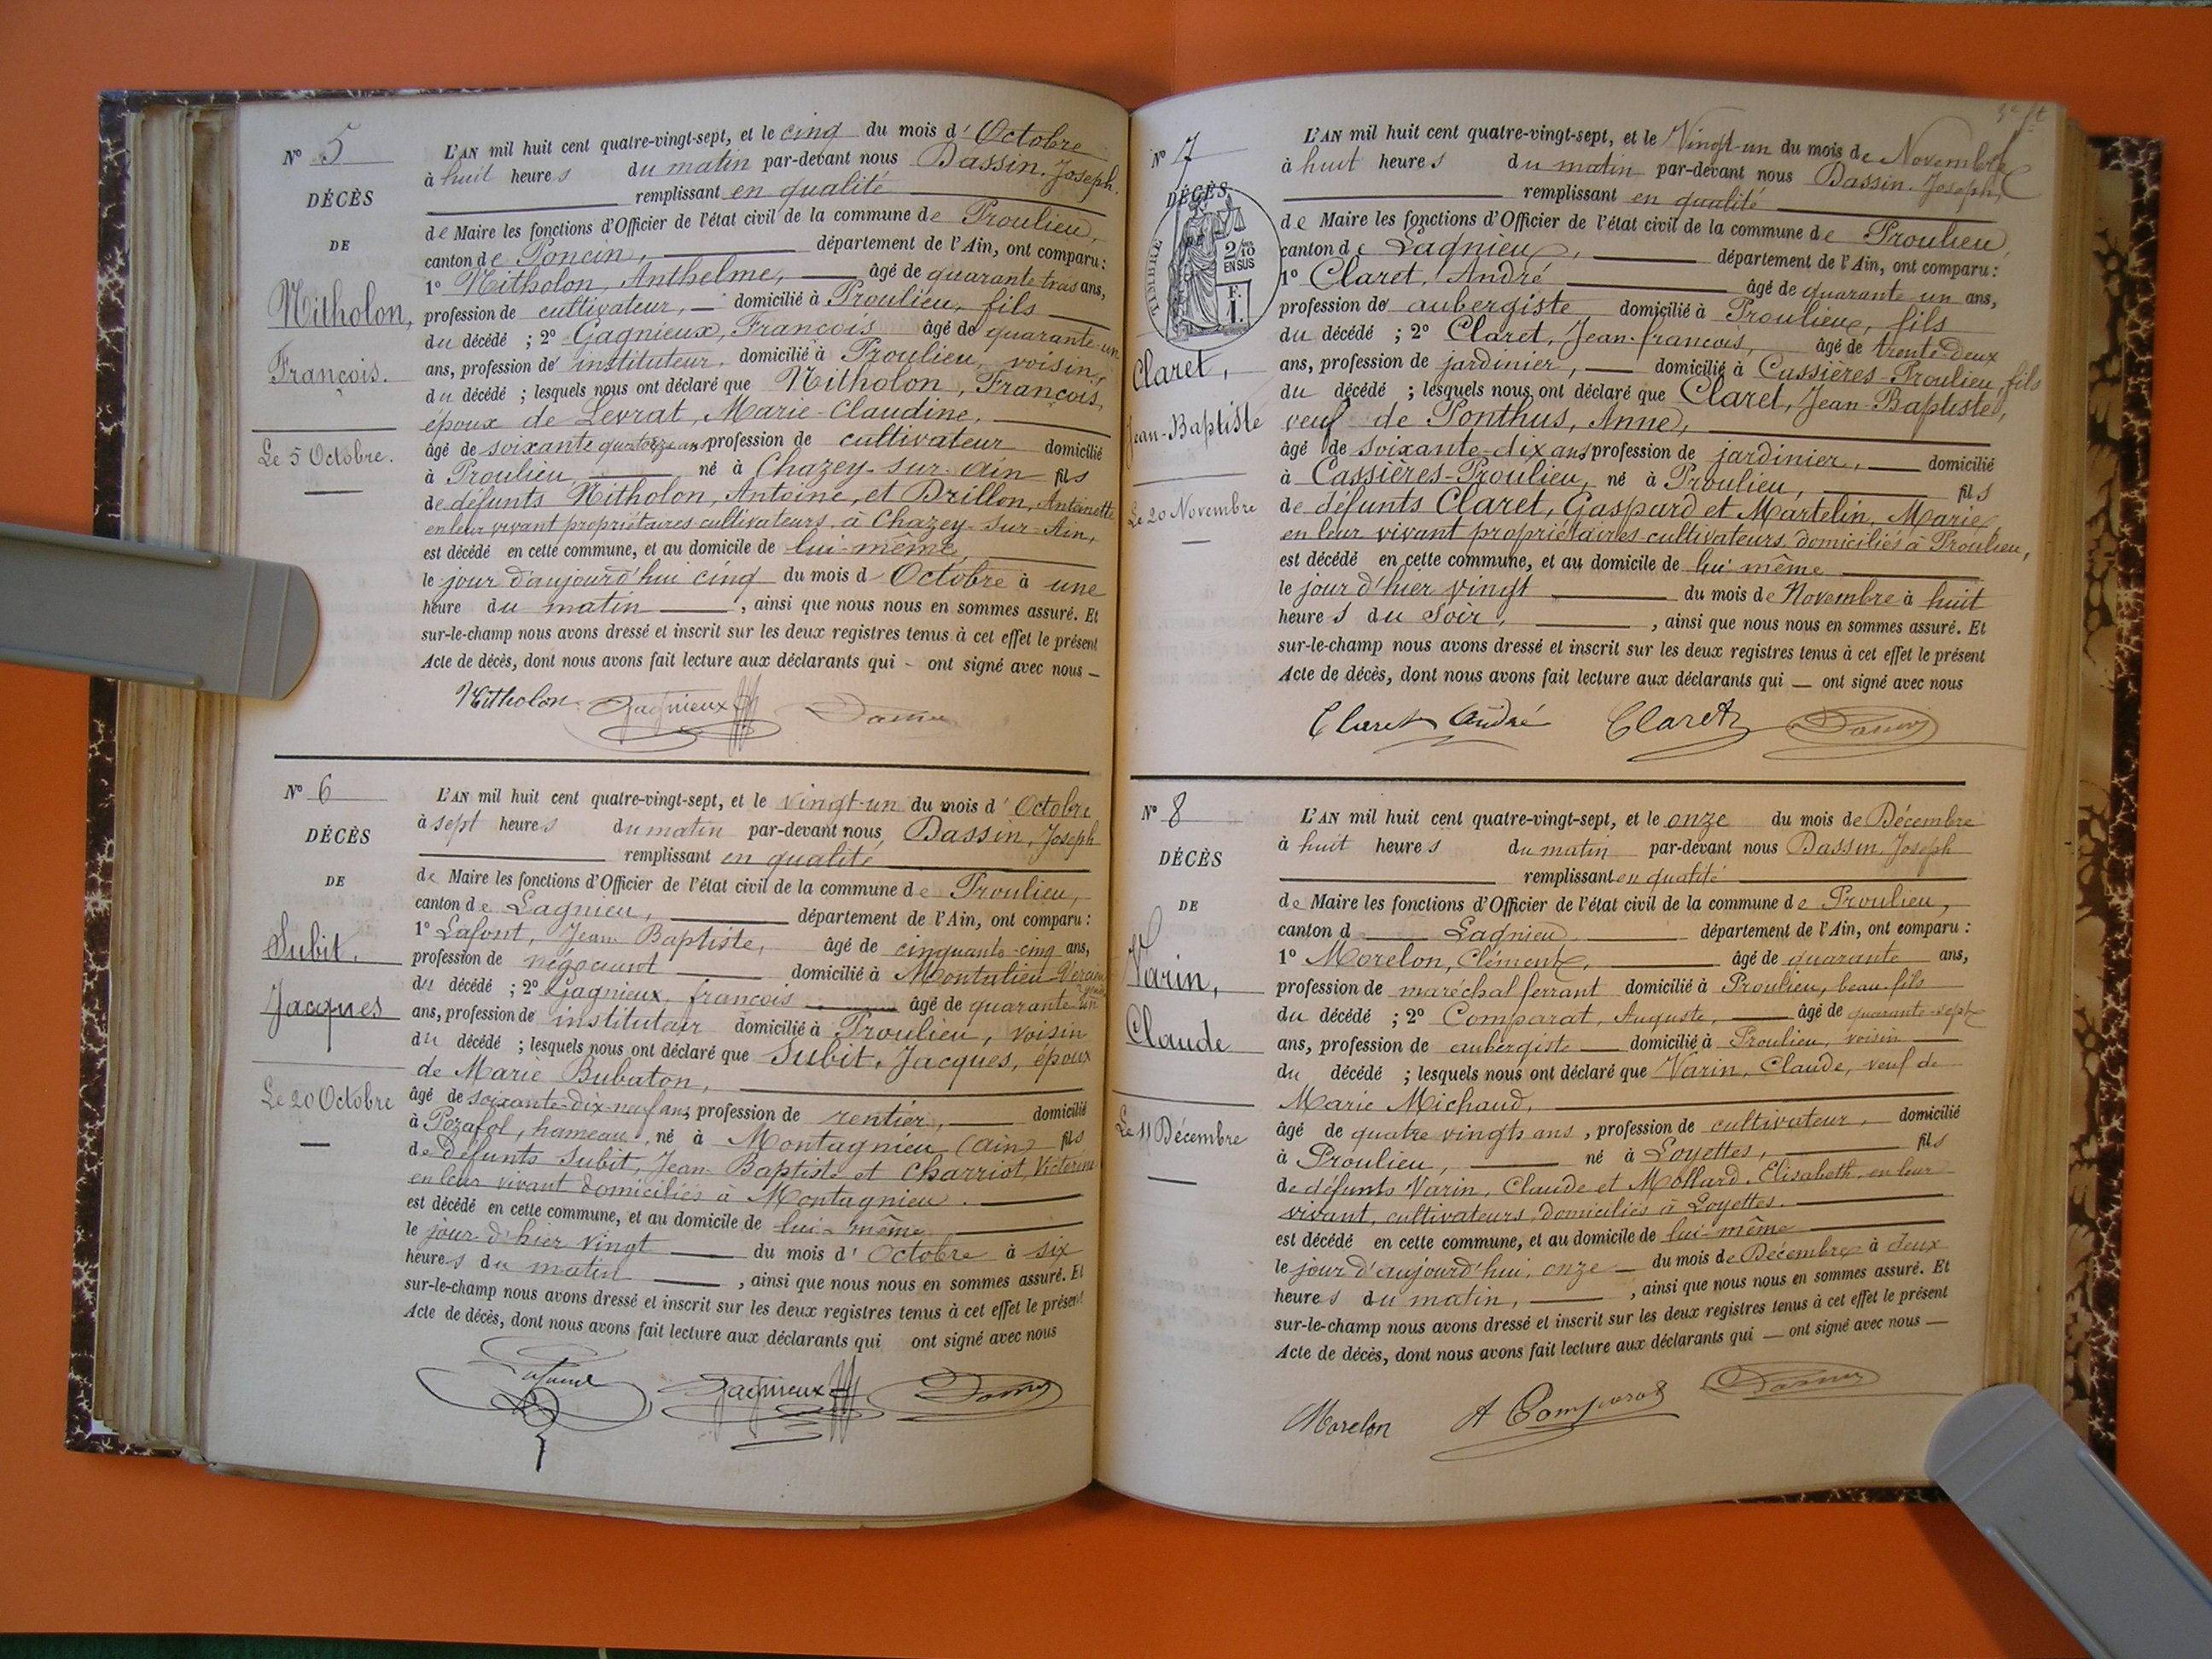 Nº 5
DÉCÈS
DE
Nitholon,
François.
Le 5 Octobre.
L'AN mil huit cent quatre-vingt-sept, et le cinq du mois d'Octobre
à huit heures du matin par-devant nous Dassin, Joseph.
remplissant en qualité
de Maire les fonctions d'Officier de l'état civil de la commune de Proulieu,
canton de Poncin, département de l'Ain, ont comparu :
1º Nitholon, Anthelme, âgé de quarante trois ans,
profession de cultivateur, domicilié à Proulieu, fils
du décédé ; 2º Gagnieux, François âgé de quarante-un
ans, profession de instituteur, domicilié à Proulieu, voisin,
du décédé ; lesquels nous ont déclaré que Nitholon, François,
époux de Levrat, Marie-Claudine,
âgé de soixante quatorze ans profession de cultivateur domicilié
à Proulieu, né à Chazey-sur-Ain fils
de défunts Nitholon, Antoine, et Drillon, Antoinette
en leur vivant propriétaires cultivateurs, à Chazey-sur-Ain,
est décédé en cette commune, et au domicile de lui-même,
le jour d'aujourd'hui cinq du mois d Octobre à une
heure du matin, ainsi que nous nous en sommes assuré. Et
sur-le-champ nous avons dressé et inscrit sur les deux registres tenus à cet effet le présent
Acte de décès, dont nous avons fait lecture aux déclarants qui - ont signé avec nous —
Nitholon Gagnieux Dassin
Nº 6
DÉCÈS
DE
Subit,
Jacques
Le 20 Octobre
L'AN mil huit cent quatre-vingt-sept, et le vingt-un du mois d'Octobre
à sept heures du matin par-devant nous, Dassin, Joseph
remplissant en qualité
de Maire les fonctions d'Officier de l'état civil de la commune de Proulieu,
canton de Lagnieu, département de l'Ain, ont comparu :
1º Lafont, Jean Baptiste, âgé de cinquante-cinq ans,
profession de négociant domicilié à Montalieu
du décédé ; 2º Gagnieux, françois âgé de quarante-un
ans, profession de instituteur domicilié à Proulieu, voisin
du décédé ; lesquels nous ont déclaré que Subit, Jacques, époux
de Marie Bubaton,
âgé de soixante-dix-neuf ans, profession de rentier, domicilié
à Pozafol, hameau, né à Montagnieu (ain) fils
de Défunts Subit, Jean-Baptiste et Charriot, Victorine
en leur vivant domiciliés à Montagnieu.
est décédé en cette commune, et au domicile de lui-même
le jour d'hier vingt du mois d'Octobre à six
heures du matin, ainsi que nous nous en sommes assuré. Et
sur-le-champ nous avons dressé et inscrit sur les deux registres tenus à cet effet le présent
Acte de décès, dont nous avons fait lecture aux déclarants qui ont signé avec nous
Lafont Gagnieux Dassin
Nº 7
DÉCÈS
TIMBRE
2/10
EN SUS
Claret,
Jean-Baptiste
Le 20 Novembre
L'AN mil huit cent quatre-vingt-sept, et le Vingt-un du mois de Novembre
à huit heures du matin par-devant nous Dassin, Joseph,
remplissant en qualité
de Maire les fonctions d'Officier de l'état civil de la commune de Proulieu
canton de Lagnieu, département de l'Ain, ont comparu :
1º Claret, André âgé de quarante un ans,
profession de aubergiste domicilié à Proulieu, fils
du décédé ; 2º Claret, Jean-françois, âgé de trente-deux
ans, profession de jardinier, domicilié à Cussières-Proulieu, fils
du décédé ; lesquels nous ont déclaré que Claret, Jean-Baptiste,
veuf de Ponthus, Anne,
âgé de soixante-dix ans profession de jardinier, domicilié
à Cassières-Proulieu, né à Proulieu, fils
de défunts Claret, Gaspard et Martelin, Marie,
en leur vivant propriétaires-cultivateurs domiciliés à Proulieu,
est décédé en cette commune, et au domicile de lui-même
le jour d'hier vingt du mois de Novembre à huit
heures du Soir, ainsi que nous nous en sommes assuré. Et
sur-le-champ nous avons dressé et inscrit sur les deux registres tenus à cet effet le présent
Acte de décès, dont nous avons fait lecture aux déclarants qui — ont signé avec nous
Claret André Claret Dassin
Nº 8
DÉCÈS
DE
Varin,
Claude
Le 11 Décembre
L'AN mil huit cent quatre-vingt-sept, et le onze du mois de Décembre
à huit heures du matin par-devant nous Dassin, Joseph
remplissant en qualité
de Maire les fonctions d'Officier de l'état civil de la commune de Proulieu,
canton d Lagnieu département de l'Ain, ont comparu :
1º Morelon, Clément, âgé de quarante ans,
profession de maréchal ferrant domicilié à Proulieu, beau-fils
du décédé ; 2º Comparat, Auguste, âgé de quarante-sept
ans, profession de aubergiste domicilié à Proulieu, voisin
du décédé ; lesquels nous ont déclaré que Varin, Claude, veuf de
Marie Michaud,
âgé de quatre vingts ans, profession de cultivateur, domicilié
à Proulieu, né à Loyettes, fils
de défunts Varin, Claude et Mollard, Elisabeth, en leur
vivant, cultivateurs, domiciliés à Loyettes.
est décédé en cette commune, et au domicile de lui-même
le jour d'aujourd'hui, onze du mois de Décembre à deux
heures du matin, ainsi que nous nous en sommes assuré. Et
sur-le-champ nous avons dressé et inscrit sur les deux registres tenus à cet effet le présent
Acte de décès, dont nous avons fait lecture aux déclarants qui — ont signé avec nous —
Morelon A Comparat Dassin